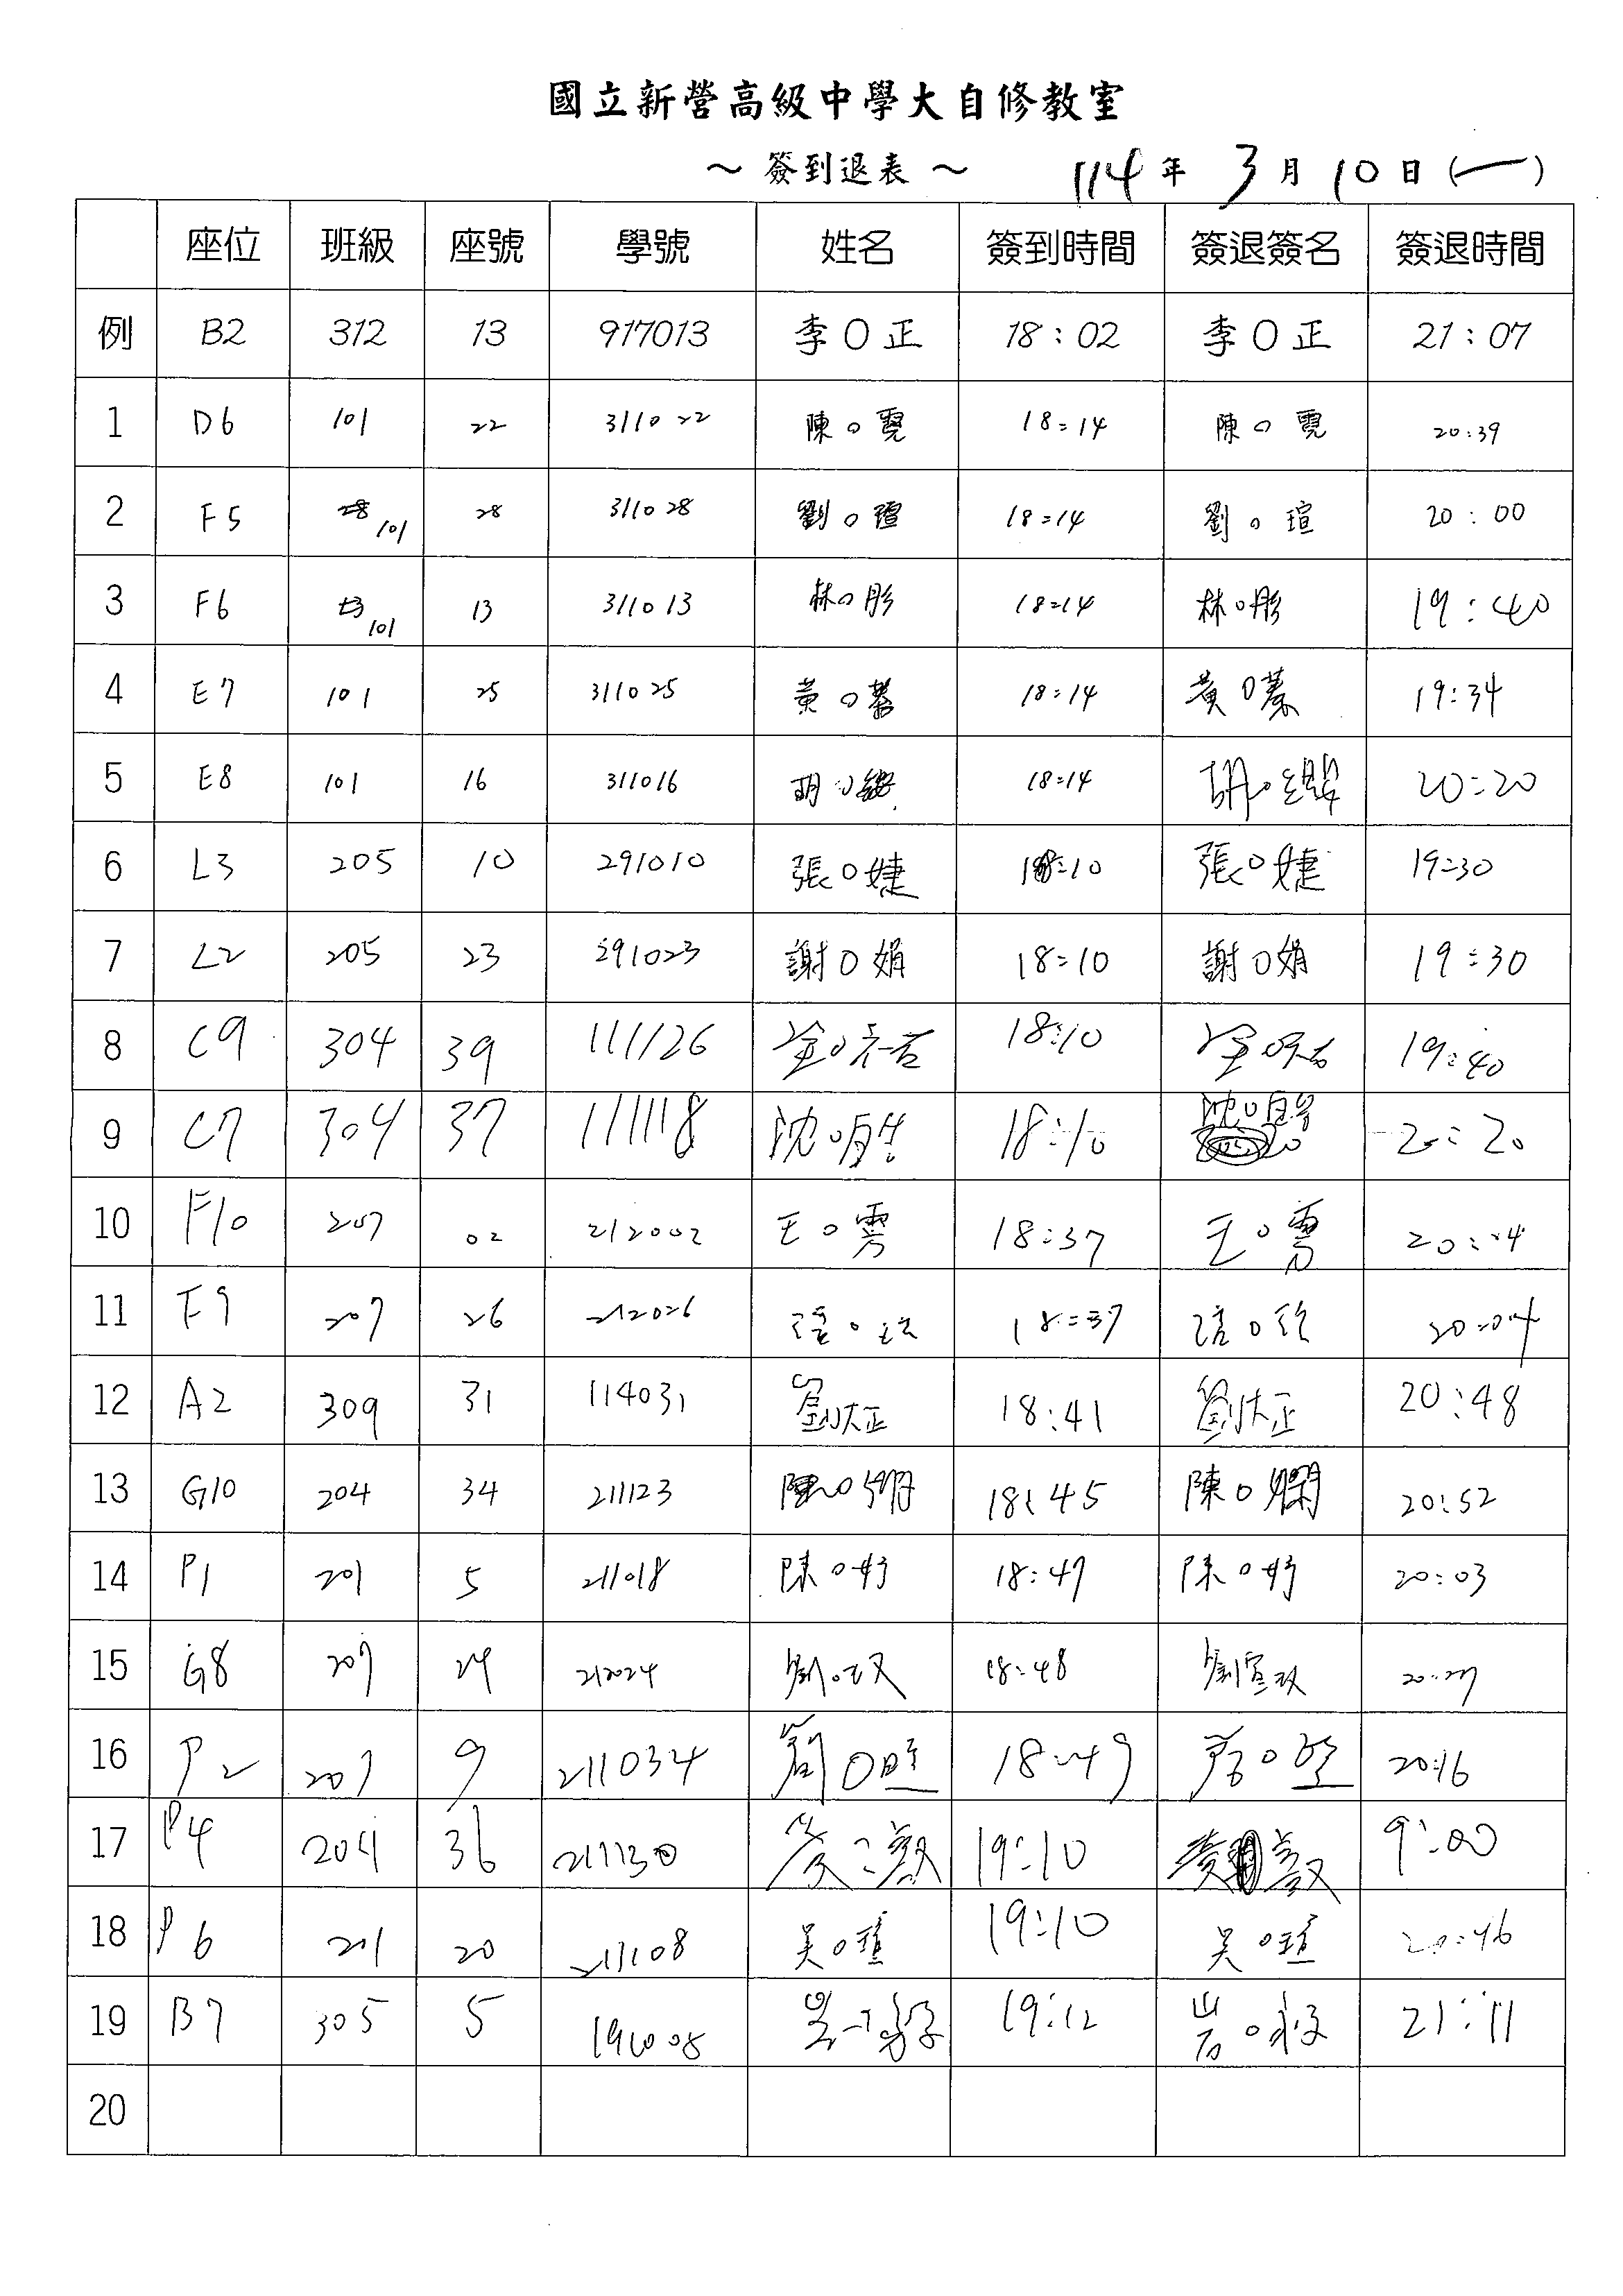 國立新營高級中學大自修教室
～ 簽到退表 ～ 114 年 3 月 10 日 (一)
座位 班級 座號 學號 姓名 簽到時間 簽退簽名 簽退時間
例 B2 312 13 917013 李O正 18:02 李O正 21:07
1 D6 101 22 311022 陳O霓 18:14 陳O霓 20:39
2 F5 101 28 311028 劉O瑄 18:14 劉O瑄 20:00
3 F6 101 13 311013 林O彤 18:14 林O彤 19:40
4 E7 101 25 311025 黃O蓁 18:14 黃O蓁 19:34
5 E8 101 16 311016 胡O 18:14 胡O 20:20
6 L3 205 10 291010 張O婕 18:10 張O婕 19:30
7 L2 205 23 291023 謝O娟 18:10 謝O娟 19:30
8 C9 304 39 111126 18:10 19:40
9 C7 304 37 111118 沈O 18:10 沈O 20:20
10 F10 207 02 212002 王O雱 18:37 王O雱 20:04
11 F9 207 26 212026 18:37 20:04
12 A2 309 31 114031 劉大正 18:41 劉大正 20:48
13 G10 204 34 211123 陳O嫻 18:45 陳O嫻 20:52
14 P1 201 5 211018 陳O妤 18:47 陳O妤 20:03
15 G8 207 24 212024 劉O 18:48 劉宣 20:27
16 P2 207 9 211034 劉O 18:49 20:16
17 P4 204 36 211130 19:10 9:00
18 P6 201 20 211108 吳O瑄 19:10 吳O瑄 20:46
19 B7 305 5 19:12 21:11
20